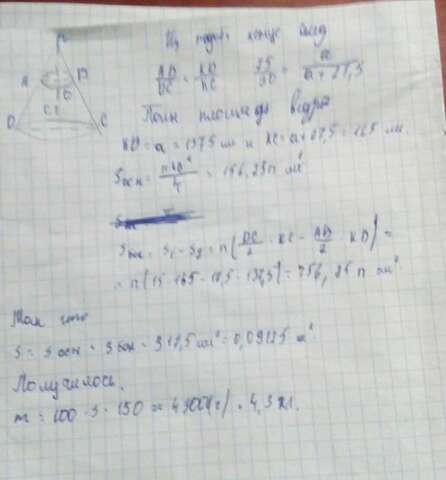 Из подоб. конуса след
AB/DC = KB/KC 25/30 = a/(a+27,5)
Полн площадь ведра
KB = a = 137,5 см и KC = a+27,5 = 165 см.
Sосн = π·AB²/4 = 156,25π см²
Sбок = S₁ - S₂ = π(DC/2 · KC - AB/2 · KB) =
= π(15·165 - 12,5·137,5) = 756,25π см²
Так что
S = Sосн + Sбок = 912,5π см² = 0,09125π м²
Получилось.
m = 100 · S · 150 ≈ 4300(г) = 4,3 кг.